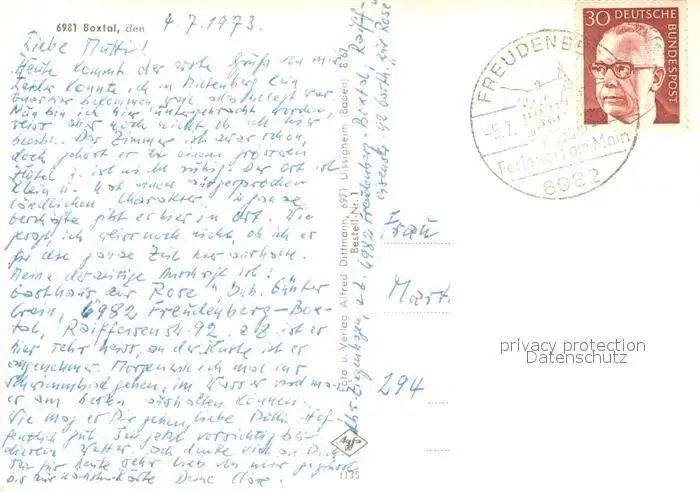 6981 Boxtal, den 4.7.1973.
Liebe Mutti!
Heute kommt der erste Gruß von mir.
Leider konnte ich in Miltenberg kein
Quartier bekommen, war alles belegt war.
Nun bin ich hier untergebracht worden,
weiss aber noch nicht ob ich hier
bleibe. Das Zimmer ist zwar schön,
doch gehört es zu einem grösseren
Hotel u. ist nicht ruhig. Der Ort ist
klein u. hat einen ausgesprochen
ländlichen Charakter.
gibt es hier im Ort. Wie
gesagt, ich weiss noch nicht, ob ich es
für die ganze Zeit hier aushalte.
Meine derzeitige Anschrift ist:
Gasthaus zur Rose, Inh. Günter
6982 Freudenberg-Box-
tal, Raiffeisenstr. 92. z.Z. ist es
hier sehr heiss, an der Küste ist es
angenehmer. Morgen will ich mal ins
Schwimmbad gehen, im Wasser wird man
es am besten aushalten können.
Wie mag es Dir gehen, liebe Mutti. Hof-
fentlich gut. Sei jetzt vorsichtig bei
diesem Wetter. Ich denke viel an Dich.
Sei für heute sehr lieb von mir gegrüsst
Deine
z.Z. 6982 Freudenberg-Boxtal, Raiff-
92 "zur Rose"
Foto u. Verlag Alfred Dittmann, 6971 Uissigheim (Baden) B'67
Bestell-Nr. 1
Agfa
1135
30 DEUTSCHE
BUNDESPOST
FREUDENBE
-5.7.
Ferienort am Main
6982
Frau
Mart
294
privacy protection
Datenschutz